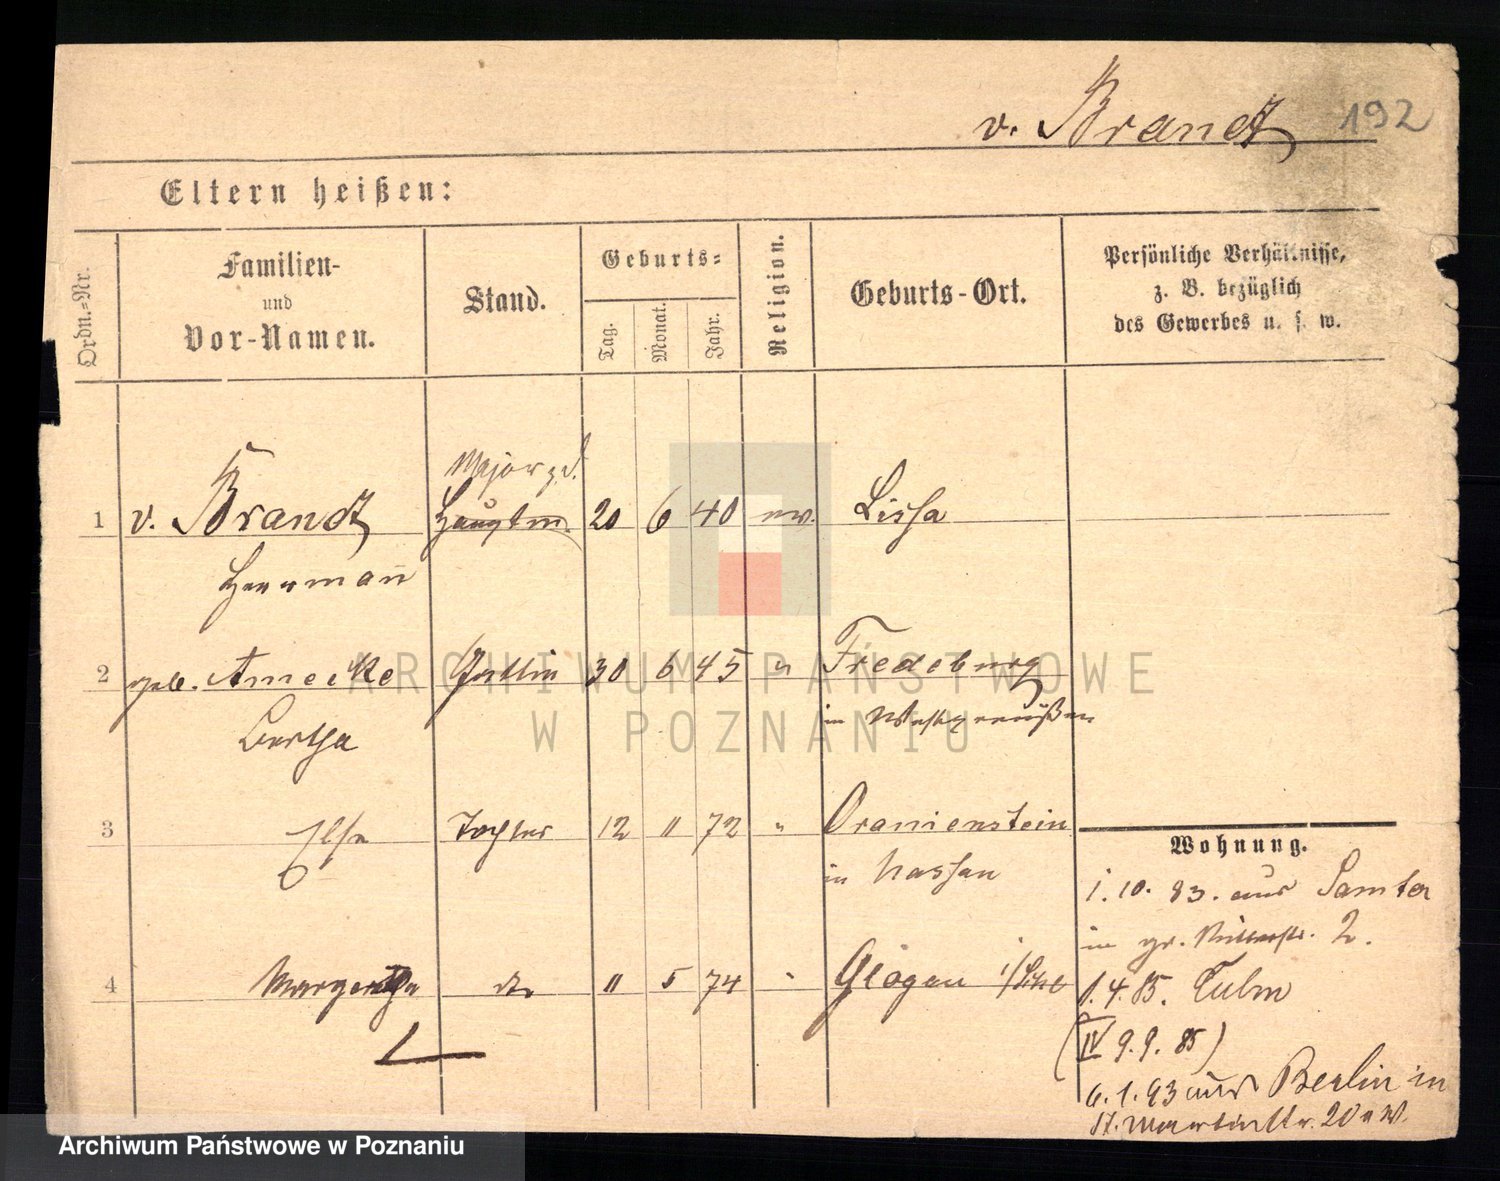 v. Brandt 192
Eltern heißen:
Ordn.-Nr.
Familien-
und
Vor-Namen.
Stand.
Geburts-
Tag.
Monat.
Jahr.
Religion.
Geburts-Ort.
Persönliche Verhältnisse,
z. B. bezüglich
des Gewerbes u. s. w.
Major z. d.
1 v. Brandt Hauptm. 20 6 40 ev. Lissa
Herrman̄
2 geb. Amecke Gattin 30 6 45 " Fredeburg
Bertha in Westpreußen
3 Else Tochter 12 11 72 " Oranienstein
in Nassau
4 Margarethe do 11 5 74 " Glogau i/Schl
Wohnung.
1. 10. 83. aus Samter
in gr. Ritterstr. 2.
1. 4. 85. Culm
(IV 9. 9. 85)
6. 1. 93 aus Berlin in
St. Martinstr. 20
ARCHIWUM PAŃSTWOWE
W POZNANIU
Archiwum Państwowe w Poznaniu